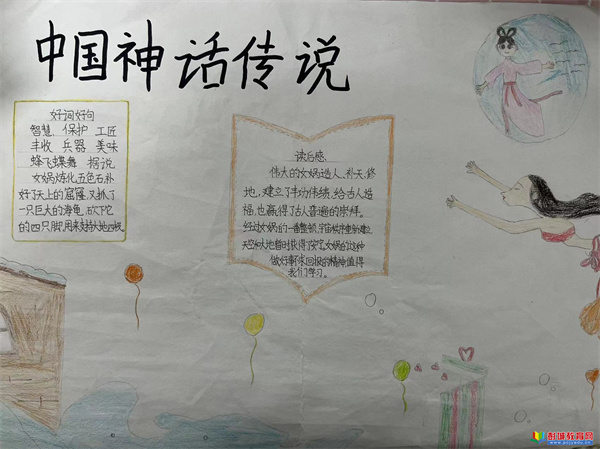 中国神话传说
好词好句
智慧、保护 工匠
丰收 兵器 美味
蜂飞蝶舞 据说
女娲炼化五色石,补
好了天上的窟窿,又抓了
一只巨大的海龟,砍下它
的四只脚,用来支持大地四极
读后感:
伟大的女娲造人、补天、修
地,建立了丰功伟绩,给古人造
福,也赢得了古人普遍的崇拜。
经过女娲的一番整顿,宇宙秩序重新建立
天空和大地暂时获得了安宁。女娲的这种
做好事不求回报的精神值得
我们学习。
彭城教育网